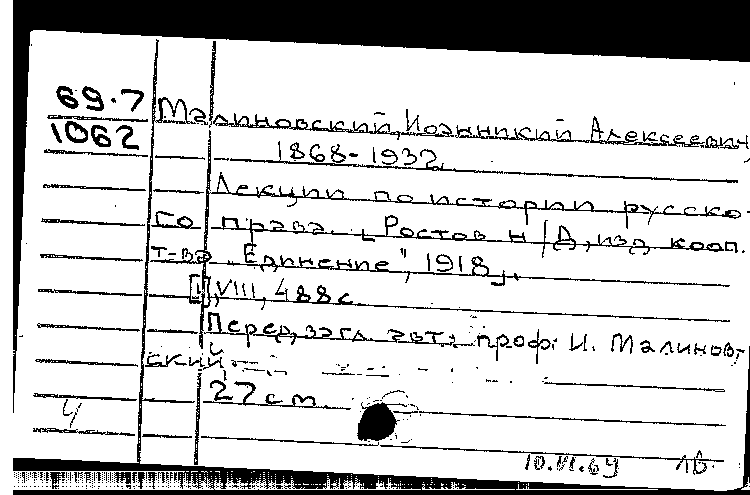 69.7
1062
Малиновский, Иоанникий Алексеевич,
1868-1932.
Лекции по истории русско-
го права. [Ростов н/Д, изд. кооп.
т-ва „Единение", 1918].
[1], VIII, 488 с.
Перед загл. авт.: проф. И. Малинов-
ский.
27 см.
4
10.VI.69 ЛВ.